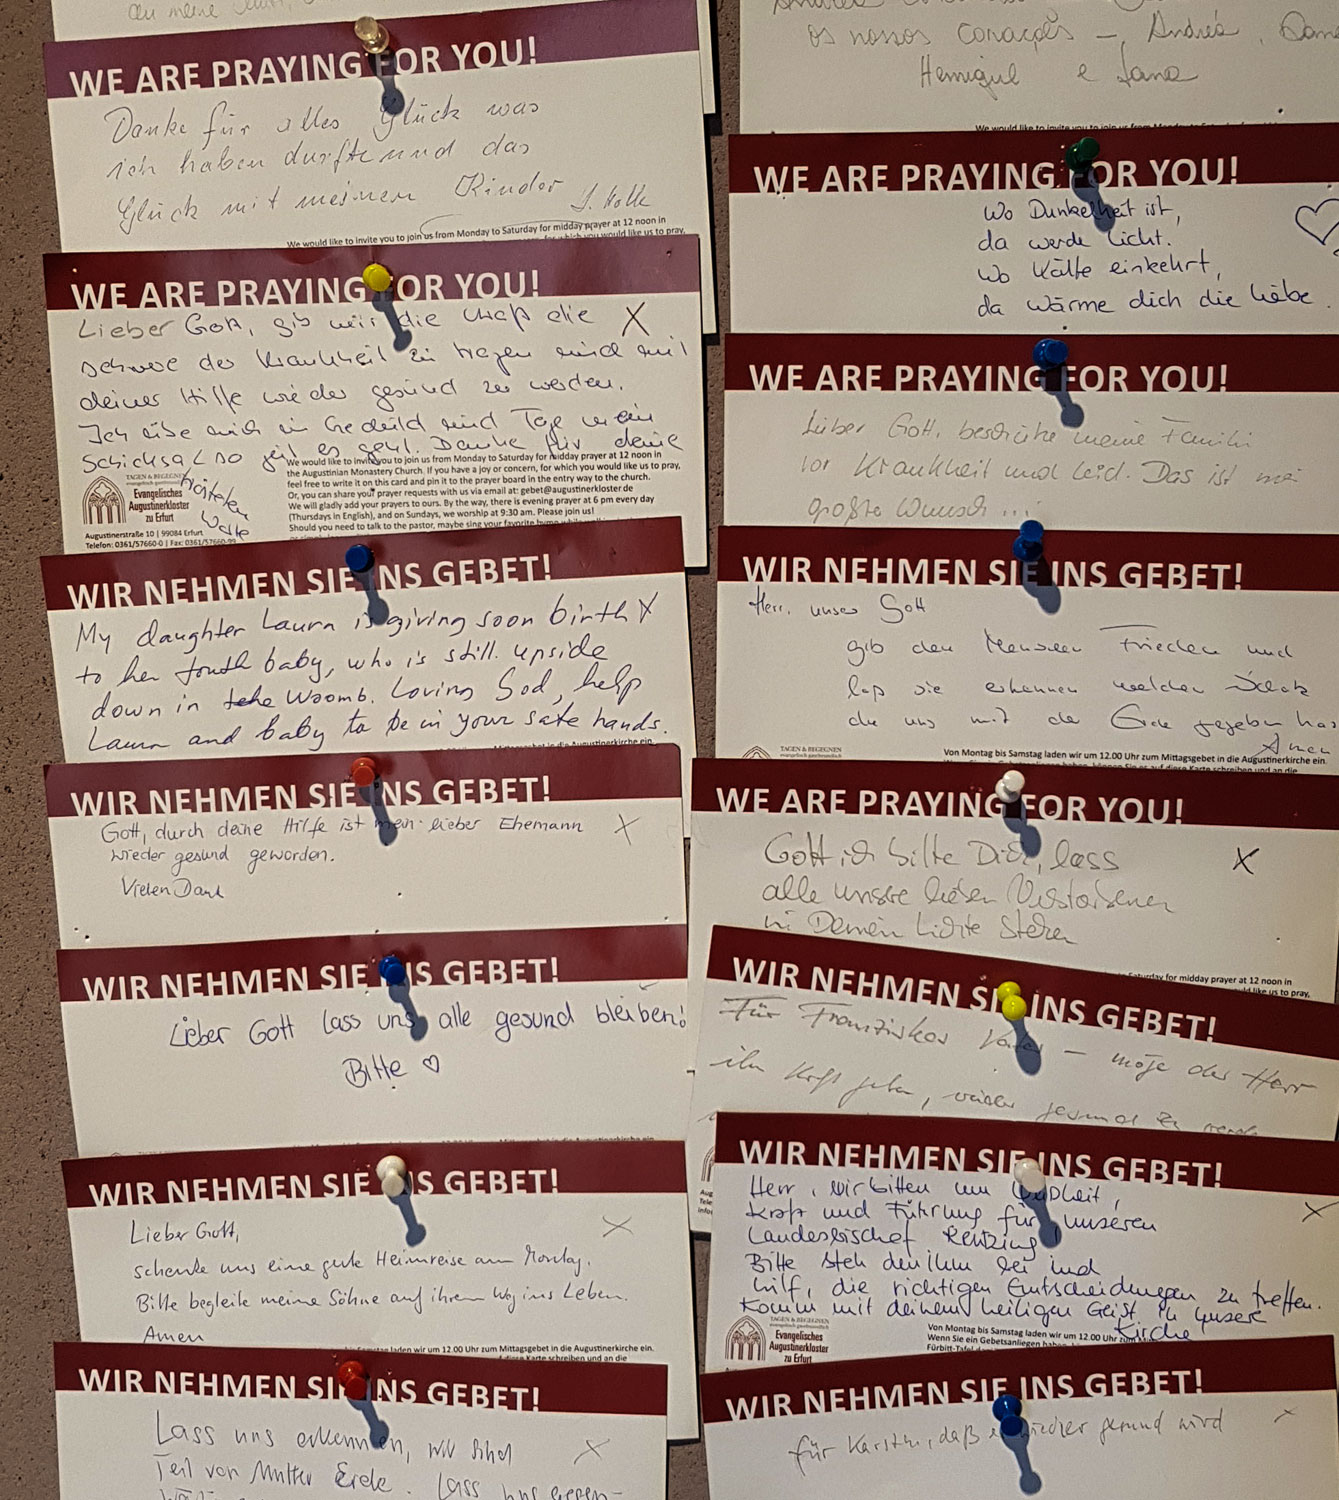 WE ARE PRAYING FOR YOU!
Danke für alles Glück was
ich haben durfte und das
Glück mit meinen Kinder
We would like to invite you to join us from Monday to Saturday for midday prayer at 12 noon in
for which you would like us to pray,
WE ARE PRAYING FOR YOU!
Lieber Gott, gib mir die Kraft die X
schwere der Krankheit zu tragen und mit
deiner Hilfe wieder gesund zu werden.
Ich übe mich in Geduld und
Schicksal so es geht. Danke für deine
tröstenden
Worte
We would like to invite you to join us from Monday to Saturday for midday prayer at 12 noon in
the Augustinian Monastery Church. If you have a joy or concern, for which you would like us to pray,
feel free to write it on this card and pin it to the prayer board in the entry way to the church.
Or, you can share your prayer requests with us via email at: gebet@augustinerkloster.de
We will gladly add your prayers to ours. By the way, there is evening prayer at 6 pm every day
(Thursdays in English), and on Sundays, we worship at 9:30 am. Please join us!
Should you need to talk to the pastor, maybe sing your favorite hymn
TAGEN & BEGEGNEN
Evangelisches
Augustinerkloster
zu Erfurt
Augustinerstraße 10 | 99084 Erfurt
Telefon: 0361/57660-0 | Fax: 0361/57660-99
WIR NEHMEN SIE INS GEBET!
My daughter Laura is giving soon birth X
to her fourth baby, who is still upside
down in the woomb. Loving God, help
Laura and baby to be in your safe hands.
WIR NEHMEN SIE INS GEBET!
Gott, durch deine Hilfe ist mein lieber Ehemann X
wieder gesund geworden.
Vielen Dank
WIR NEHMEN SIE INS GEBET!
Lieber Gott lass uns alle gesund bleiben!
Bitte ♡
WIR NEHMEN SIE INS GEBET!
Lieber Gott, X
schenke uns eine gute Heimreise am Montag.
Bitte begleite meine Söhne auf ihrem Weg ins Leben.
Amen
laden wir um 12.00 Uhr zum Mittagsgebet in die Augustinerkirche ein.
diese Karte schreiben und an die
WIR NEHMEN SIE INS GEBET!
Lass uns erkennen, wir sind X
Teil von Mutter Erde. Lass uns
os nossos corações –, Andréa,
Henrique e Jana
We would like to invite you to join us from Monday to
WE ARE PRAYING FOR YOU!
Wo Dunkelheit ist,
da werde Licht.
Wo Kälte einkehrt,
da wärme dich die Liebe.
WE ARE PRAYING FOR YOU!
Lieber Gott, beschütze meine Familie
vor Krankheit und Leid. Das ist mein
größter Wunsch ...
WIR NEHMEN SIE INS GEBET!
Herr, unser Gott
gib den Menschen Frieden und
laß sie erkennen welchen Schatz
du uns mit der Erde gegeben hast
Amen
TAGEN & BEGEGNEN
Von Montag bis Samstag laden wir um 12.00 Uhr zum Mittagsgebet in die Augustinerkirche ein.
WE ARE PRAYING FOR YOU!
Gott ich bitte Dich, lass X
alle unsere lieben Verstorbenen
in Deinem Lichte stehen
for midday prayer at 12 noon in
like us to pray,
WIR NEHMEN SIE INS GEBET!
Für Franziskas Vater – möge der Herr
ihm Kraft geben, wieder gesund zu
WIR NEHMEN SIE INS GEBET!
Herr, wir bitten um Weisheit, X
Kraft und Führung für unseren
Landesbischof
Bitte steh den ihm bei und
hilf, die richtigen Entscheidungen zu treffen.
Komm mit deinem heiligen Geist in unsere
Kirche
TAGEN & BEGEGNEN
Evangelisches
Augustinerkloster
zu Erfurt
Von Montag bis Samstag laden wir um 12.00 Uhr
Wenn Sie ein Gebetsanliegen haben,
WIR NEHMEN SIE INS GEBET!
für Karsten, daß er wieder gesund wird